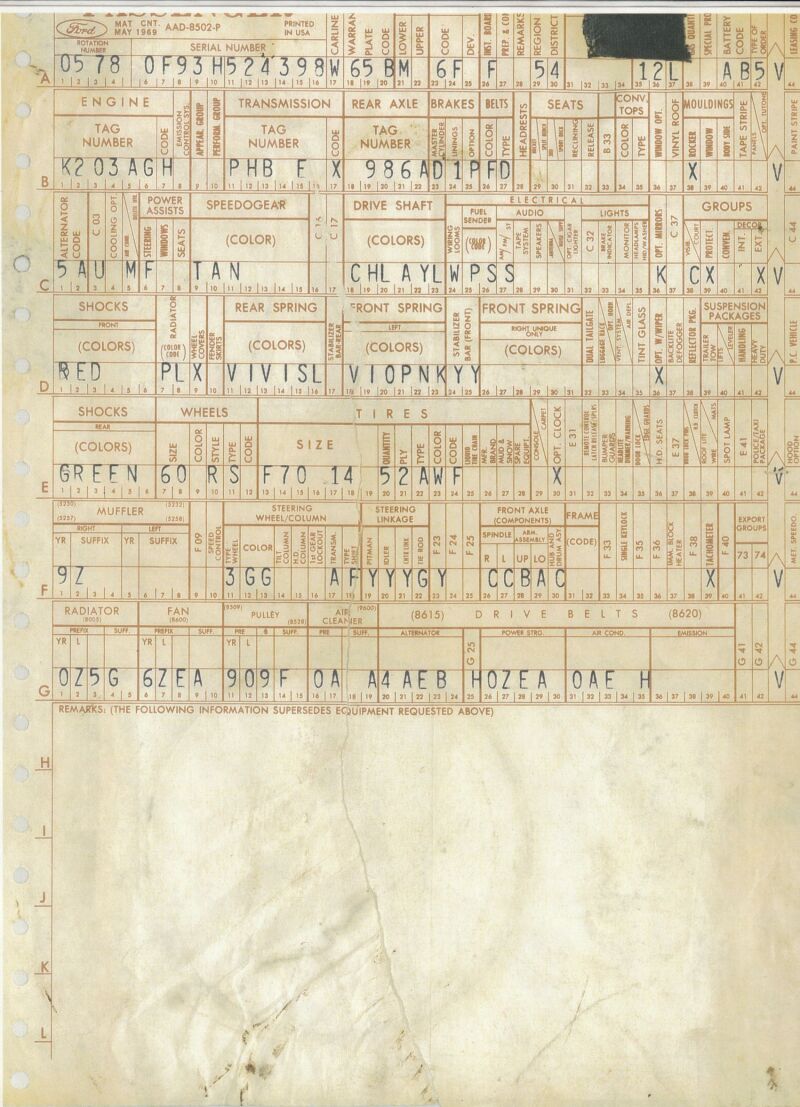 Ford
MAT CNT. AAD-8502-P
MAY 1969
PRINTED
IN USA
ROTATION
NUMBER
SERIAL NUMBER
CARLINE
PLATE
CODE
LOWER
UPPER
CODE
DEV.
REMARKS
REGION
DISTRICT
BATTERY
CODE
TYPE OF
ORDER
A 0578 0F93H524398W 65BM 6F F 54 12L AB5 V
ENGINE TRANSMISSION REAR AXLE BRAKES BELTS SEATS CONV. TOPS MOULDINGS
TAG NUMBER
CODE
EMISSION CONTROL SYS.
APPEAR. GROUP
PERFORM. GROUP
TAG NUMBER
CODE
TAG NUMBER
MASTER CYLINDER
LININGS
OPTION
COLOR
TYPE
HEADRESTS
RECLINING
RELEASE
B 33
COLOR
TYPE
WINDOW OPT.
VINYL ROOF
ROCKER
WINDOW
BODY SIDE
TAPE STRIPE
PAINT STRIPE
B K203AGH PHB F X 986AD1PFD X V
ALTERNATOR CODE
C 03
COOLING OPT.
POWER ASSISTS
STEERING
WINDOWS
SEATS
SPEEDOGEAR
(COLOR)
C 16
C 17
DRIVE SHAFT
(COLORS)
ELECTRICAL
WIRING LOOMS
FUEL SENDER
AUDIO
TAPE SYSTEM
SPEAKERS
OPT. CIGAR LIGHTER
C 32
LIGHTS
MONITOR
OPT. MIRRORS
C 37
GROUPS
PROTECT.
CONVEN.
DECOR
INT.
EXT.
C 44
C 5AU MF TAN CHLAYLWPSS K CX XV
SHOCKS RADIATOR REAR SPRING FRONT SPRING FRONT SPRING SUSPENSION PACKAGES
FRONT
(COLORS)
WHEEL COVERS
FENDER SKIRTS
(COLORS)
STABILIZER BAR-REAR
LEFT
(COLORS)
STABILIZER BAR (FRONT)
RIGHT UNIQUE ONLY
(COLORS)
DUAL TAILGATE
TINT GLASS
OPT. W/WIPER
BACKLITE DEFOGGER
REFLECTOR PKG.
TRAILER TOW
HANDLING
HEAVY DUTY
P.C. VEHICLE
D RED PLX VIVISL VIOPNKYY X V
SHOCKS WHEELS TIRES
REAR
(COLORS)
SIZE
COLOR
STYLE
TYPE
CODE
SIZE
QUANTITY
PLY
TYPE
COLOR
CODE
CONSOLE
OPT. CLOCK
E 31
H.D. SEATS
E 37
SPOT LAMP
E 41
E GREEN 60 RS F70 14 52AWF X V
MUFFLER
RIGHT LEFT
YR SUFFIX YR SUFFIX
F 09
SPEED CONTROL
STEERING WHEEL/COLUMN
TYPE WHEEL
COLOR
TILT COLUMN
H.D. COLUMN
1st GEAR LOCKOUT
TRANSM.
TYPE SHIFT
STEERING LINKAGE
PITMAN
IDLER
TIE ROD
F 23
F 24
F 25
FRONT AXLE (COMPONENTS)
SPINDLE
R L
ARM. ASSEMBLY
UP LO
HUB AND DRUM ASY
FRAME (CODE)
F 33
SINGLE KEYLOCK
F 35
F 36
F 38
TACHOMETER
F 40
EXPORT GROUPS
73 74
F 9Z 3GG AFYYYGY CCBAC X V
RADIATOR FAN PULLEY AIR CLEANER (8615) DRIVE BELTS (8620)
(8005) (8600) (9600)
PREFIX SUFF. PREFIX SUFF. PRE 6 SUFF. PRE SUFF. ALTERNATOR POWER STRG. AIR COND. EMISSION
YR L YR L YR L
G 25
G 41
G 42
G 44
G 0Z5G 6ZEA 909F 0A A4 AEB HOZEA OAE H V
REMARKS: (THE FOLLOWING INFORMATION SUPERSEDES EQUIPMENT REQUESTED ABOVE)
H
I
J
K
L